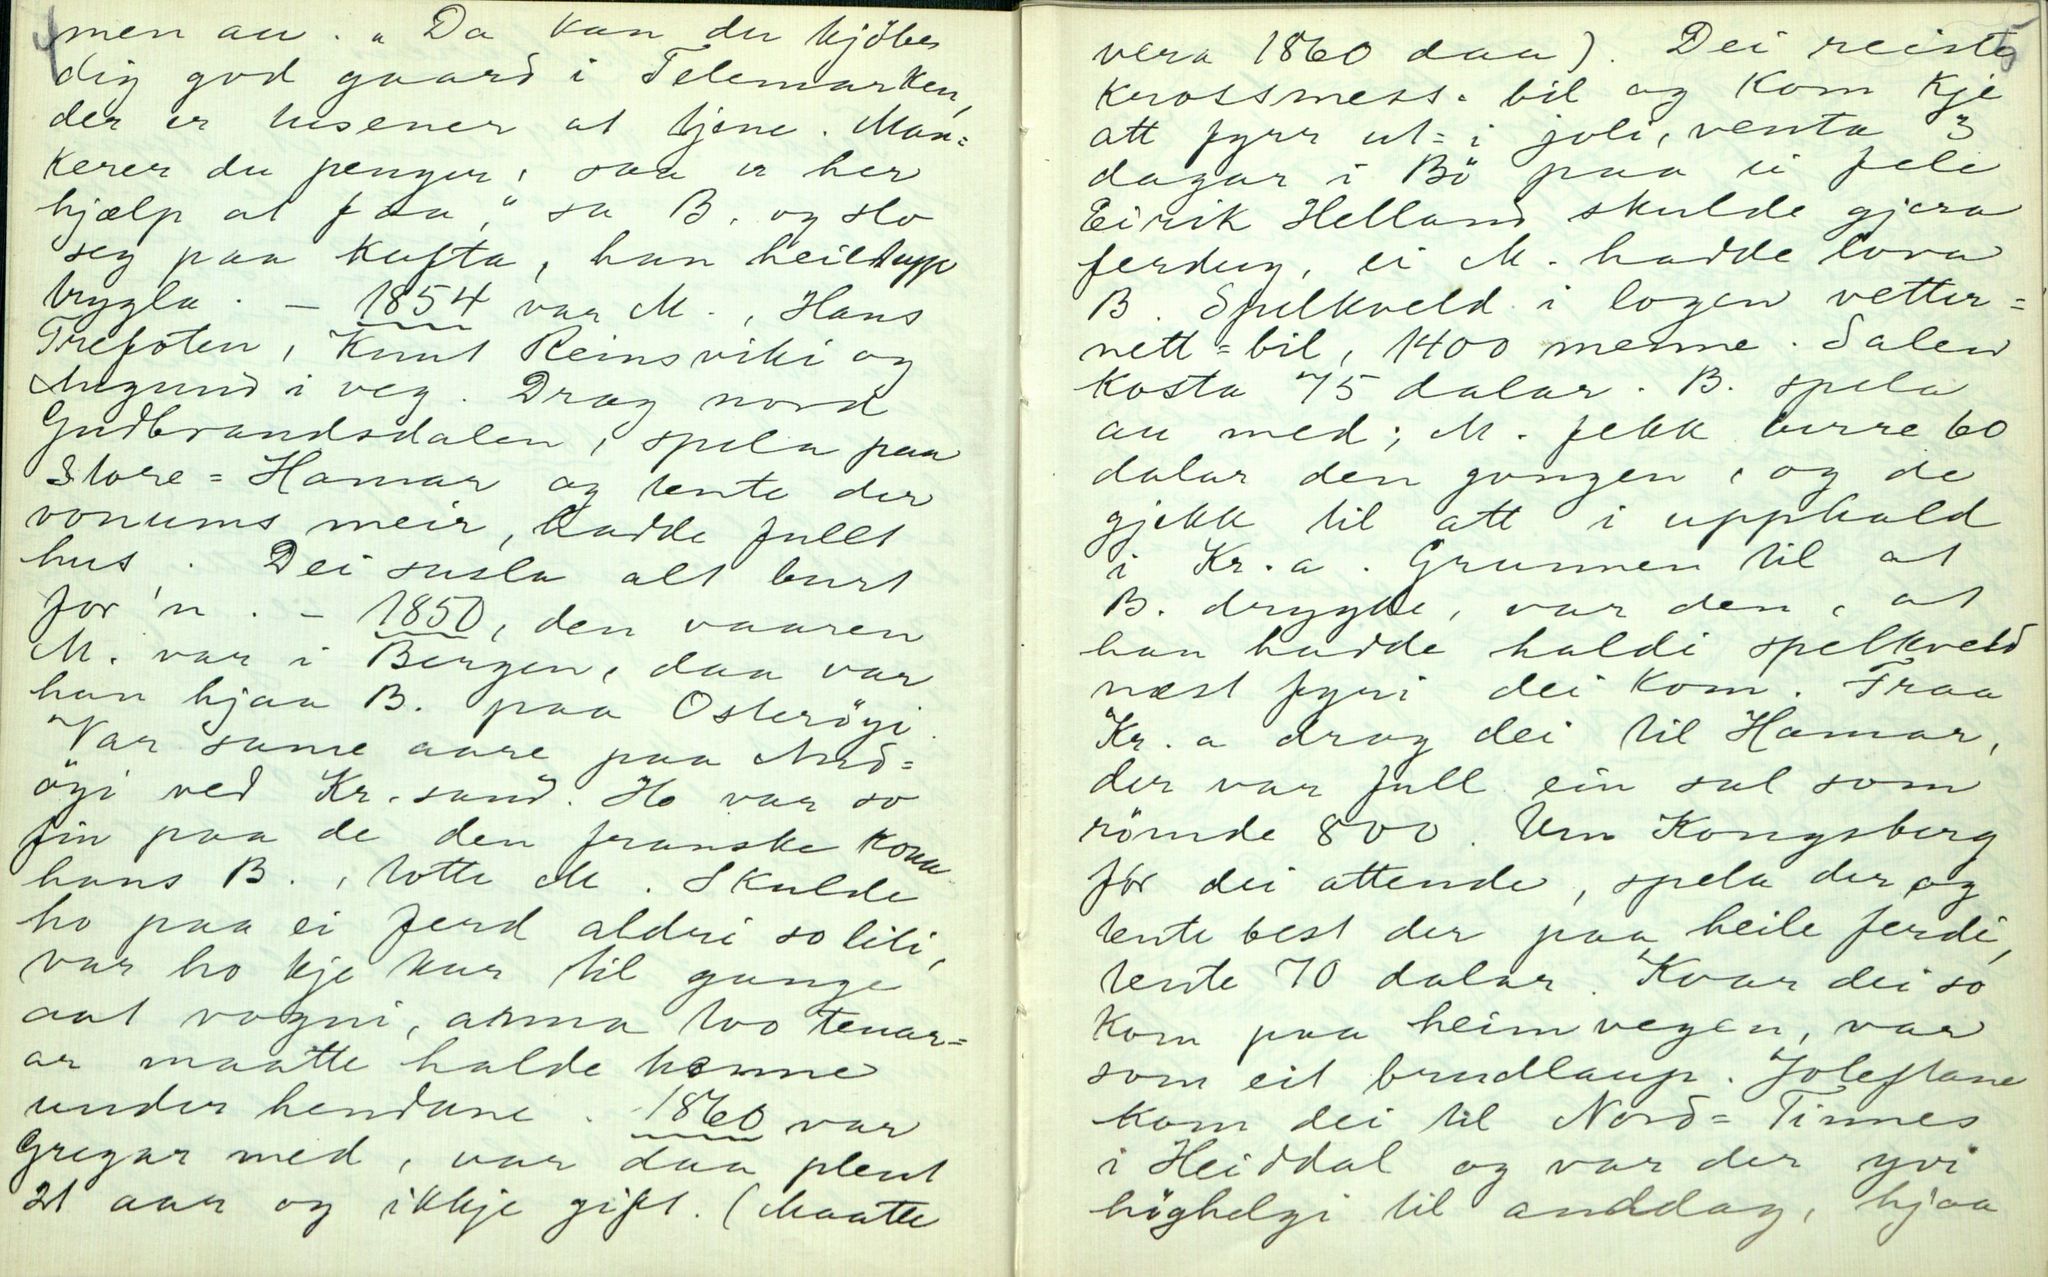 4
men au. „Da kan du kjöbe
dig god gaard i Telemarken,
der er tusener at tjene. Man=
kerer du penger, saa er her
hjælp at faa," sa B. og slo
seg paa kufta, han heilt upp
trygla. — 1854 var M., Hans
Trefoten, Knut Reinsviki og
Augund i veg. Drog nord
Gudbrandsdalen, spela paa
Store=Hamar og tente der
vonums meir, hadde fullt
hus. Dei susla alt burt
for 'n. — 1850, den vaaren
M. var i Bergen, daa var
han hjaa B. paa Osteröyi.
Var same aare paa Aud=
öyi ved Kr.sand. Ho var so
fin paa de den franske kona
hans B., totte M. Skulde
ho paa ei ferd aldri so liti,
var ho kje kar til gange
aat vogni, anna two tenar=
ar maatte halde henne
under hendane. 1860 var
Gregar med, var daa plent
21 aar og ikkje gift. (Maatte
5
vera 1860 daa). Dei reiste
krossmess-bil og kom kje
att fyrr ut=i joli, venta 3
dagar i Bö paa ei fele
Eirik Helland skulde gjera
ferdug, ei M. hadde lova
B. Spelkveld i logen vetter=
nett=bil, 1400 menne. Salen
kosta 75 dalar. B. spela
au med; M. fekk berre 60
dalar den gongen, og de
gjekk til att i upphald
i Kr.a. Grunnen til at
B. drygde, var den, at
han hadde haldi spelkveld
næst fyri dei kom. Fraa
Kr.a drog dei til Hamar,
der var full ein sal som
römde 800. Um Kongsberg
för dei attende, spela der og
tente best der paa heile ferdi,
tente 70 dalar. Kvar dei so
kom paa heimvegen, var
som eit brudlaup. Joleftane
kom dei til Nord=Tinnes
i Heiddal og var der yvi
höghelgi til anddag, hjaa